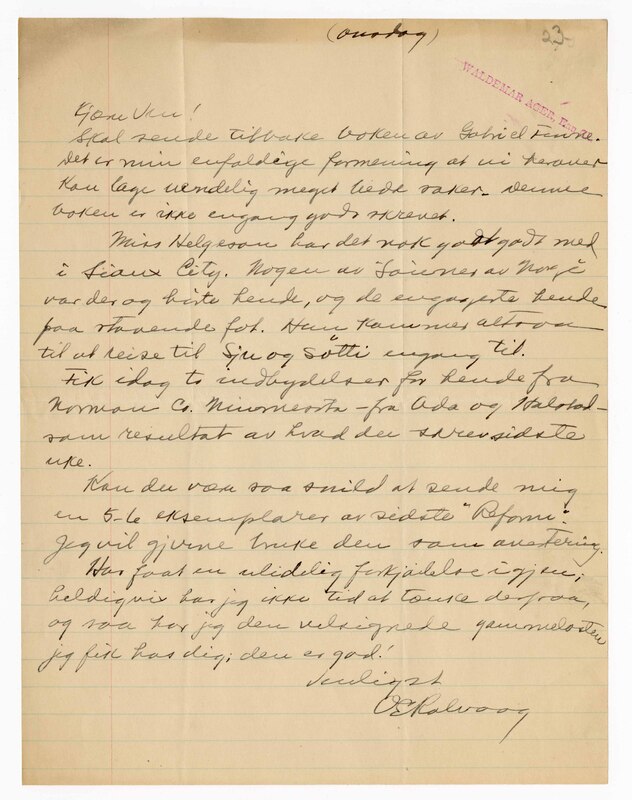 (onsdag)
23
WALDEMAR AGER,
Kjære Ven!
Skal sende tilbake boken av Gabriel Finne.
Det er min enfoldige formening at vi herover
kan lage uendelig meget bedre saker. Denne
boken er ikke engang godt skrevet.
Miss Helgeson har det nok godt med
i Sioux City. Nogen av "Sønner av Norge"
var der og hørte hende, og de engagerte hende
paa staaende fot. Hun kommer altsaa
til at reise til Sju og Søtti engang til.
Fik idag to indbydelser for hende fra
Norman Co. Minnesota - fra Ada og Halstad -
som resultat av hvad du skrev sidste
uke.
Kan du være saa snild at sende mig
en 5-6 eksemplarer av sidste "Reform".
Jeg vil gjerne bruke den som avertering.
Har faat en ulidelig forkjølelse igjen;
heldigvis har jeg ikke tid at tænke derpaa,
og saa har jeg den velsignede gammelosten
jeg fik hos dig; den er god!
Venligst
O E Rølvaag